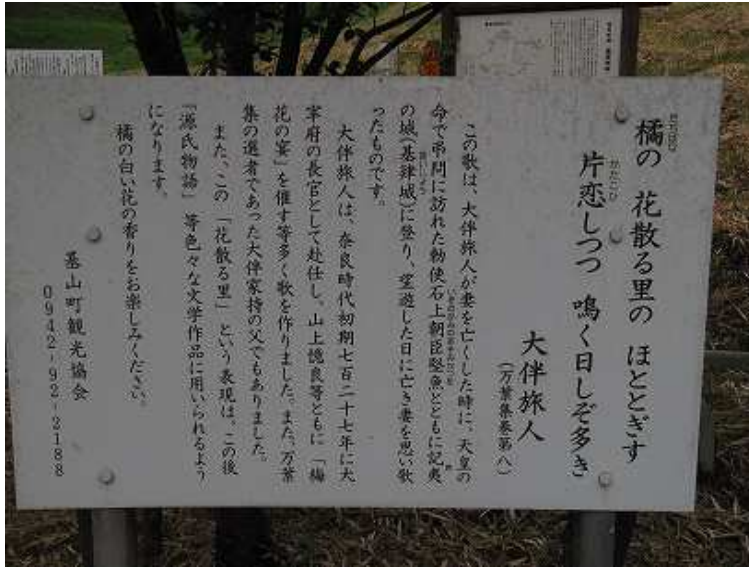 橘の 花散る里の ほととぎす
片恋しつつ 鳴く日しぞ多き
大伴旅人
(万葉集巻第八)
この歌は、大伴旅人が妻を亡くした時に、天皇の
命で弔問に訪れた勅使石上朝臣堅魚とともに記夷
の城(基肄城)に登り、望遊した日に亡き妻を思い歌
ったものです。
大伴旅人は、奈良時代初期七百二十七年に大
宰府の長官として赴任し。山上憶良等ともに「梅
花の宴」を催す等多く歌を作りました。また、万葉
集の選者であった大伴家持の父でもありました。
また、この「花散る里」という表現は、この後
『源氏物語』等色々な文学作品に用いられるよう
になります。
橘の白い花の香りをお楽しみください。
基山町観光協会
0942-92-2188